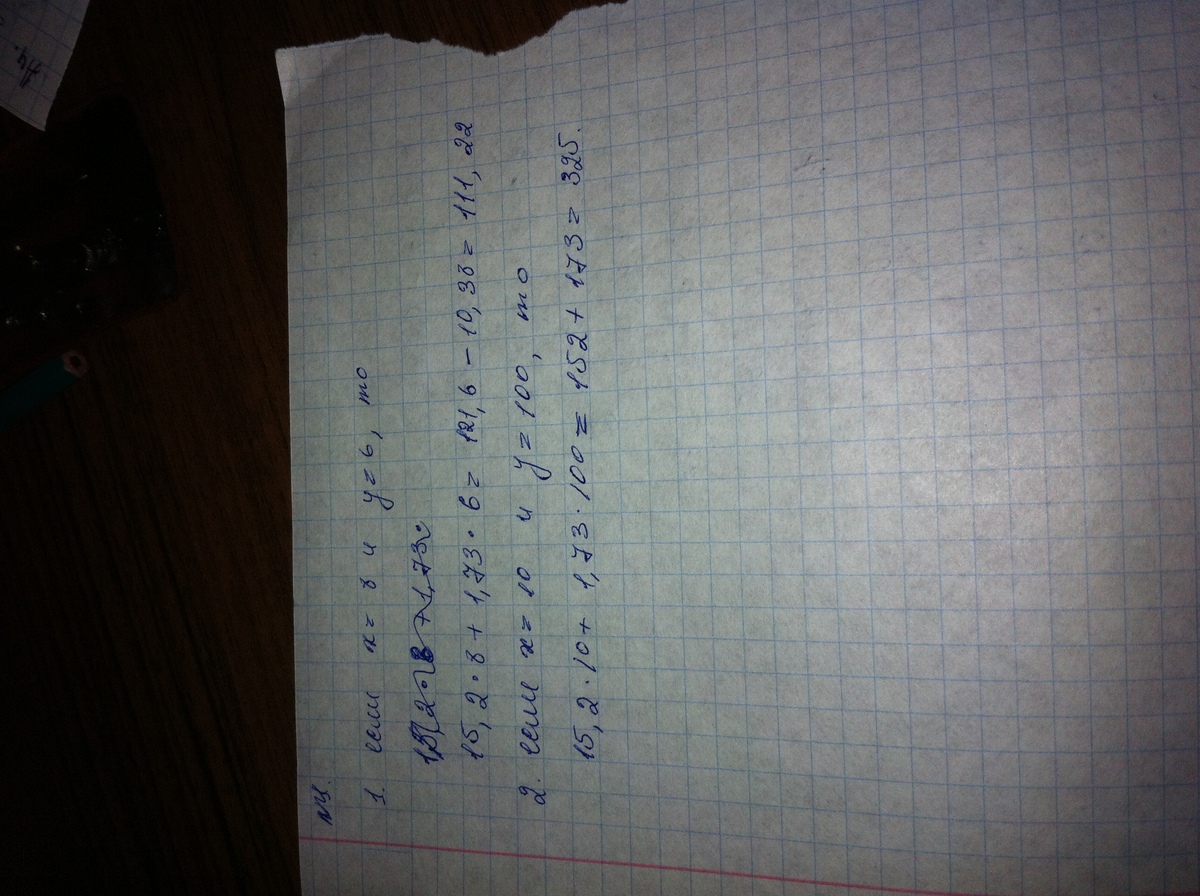 №4.
1. если x = 8 и y = 6, то
15,2 · 8 + 1,73 ·
15,2 · 8 + 1,73 · 6 = 121,6 − 10,38 = 111,22
2. если x = 10 и y = 100, то
15,2 · 10 + 1,73 · 100 = 152 + 173 = 325.